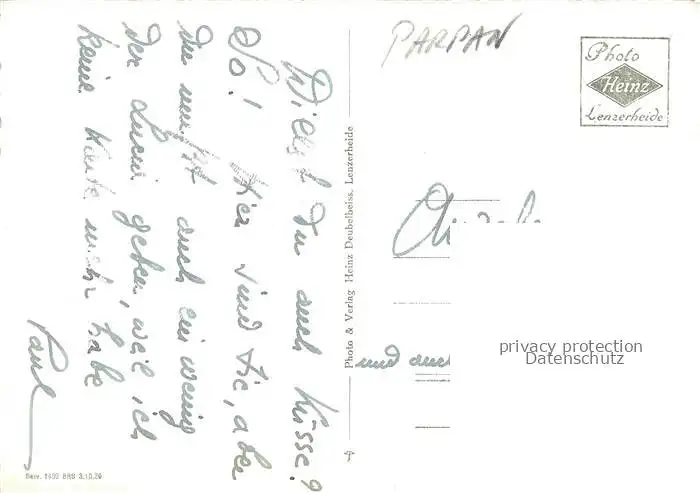 PARPAN
Photo
Heinz
Lenzerheide
Willst Du auch Küsse?
So! Hier sind sie, aber
Du musst auch ein wenig
der Lucie geben, weil ich
keine Karte mehr habe
Paul
Photo & Verlag Heinz Deubelbeiss, Lenzerheide
und auch
privacy protection
Datenschutz